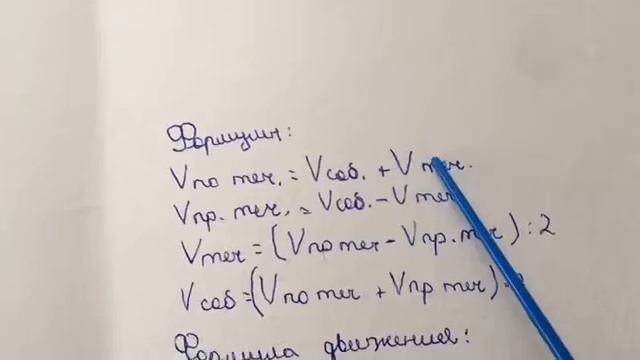 Формулы:
Vпо теч. = Vсоб. + Vтеч.
Vпр. теч. = Vсоб. - Vтеч
Vтеч = (Vпо теч - Vпр. теч) : 2
Vсоб = (Vпо теч + Vпр теч) : 2
Формула движения: